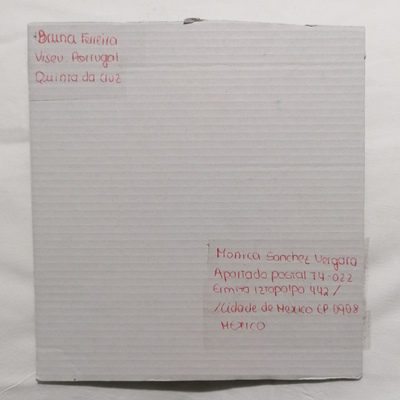 Bruna Ferreira
Viseu Portugal
Quinta da Cruz
Monica Sanchez Vergara
Apartado postal 74-022
Ermita Iztapalpa 442/
/Cidade de Mexico CP 0908
MEXICO